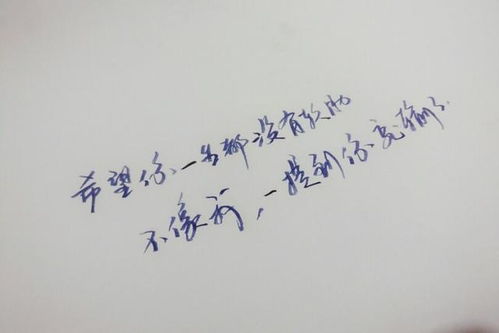 希望你一生都没有软肋
不像我,一提到你竟输了.